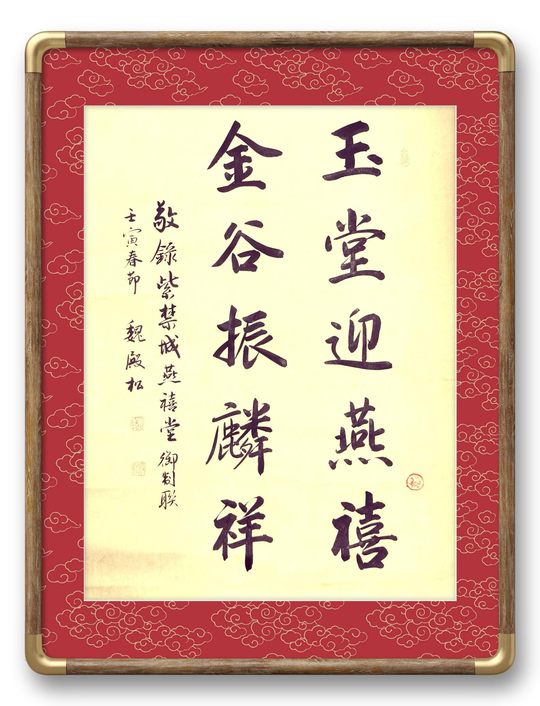 玉堂迎燕禧
金谷振麟祥
敬錄紫禁城燕禧堂御制联
壬寅春節 魏殿松